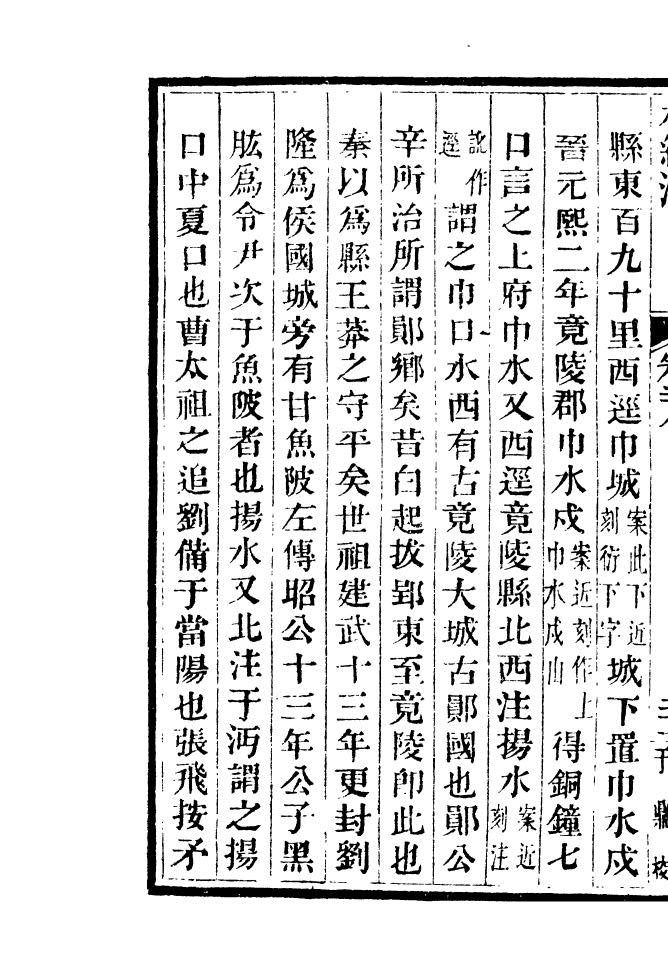 縣東百九十里西逕巾城案此下近刻衍下字城下置巾水戍
晉元熙二年竟陵郡巾水戍案近刻作上巾水戍山得銅鐘七
口言之上府巾水又西逕竟陵縣北西注揚水案近刻注
訛作逕謂之巾口水西有古竟陵大城古鄖國也鄖公
辛所治所謂鄖鄉矣昔白起拔郢東至竟陵卽此也
秦以爲縣王莽之守平矣世祖建武十三年更封劉
隆爲侯國城旁有甘魚陂左傳昭公十三年公子黑
肱爲令尹次于魚陂者也揚水又北注于沔謂之揚
口中夏口也曹太祖之追劉備于當陽也張飛按矛